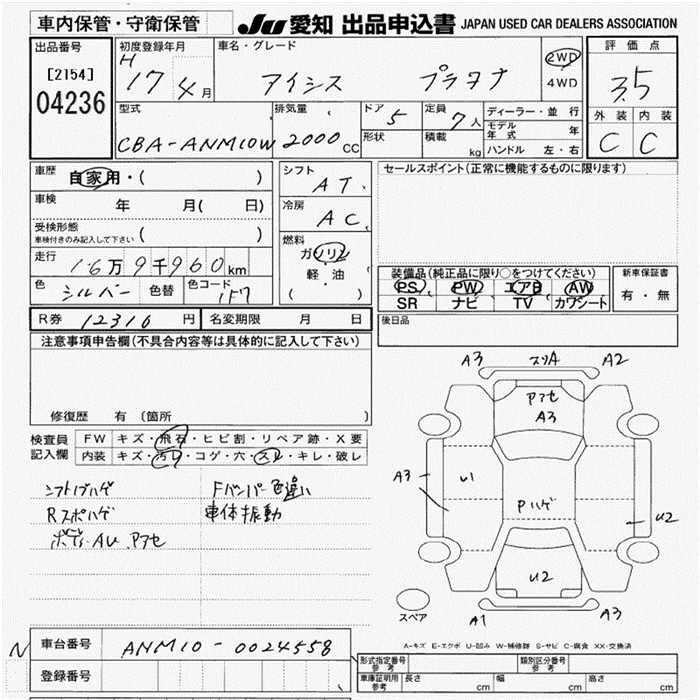 車内保管・守衛保管
JU 愛知 出品申込書 JAPAN USED CAR DEALERS ASSOCIATION
出品番号
[2154]
04236
初度登録年月
H 17 年 4 月
車名・グレード
アイシス プラタナ
2WD
4WD
評価点
3.5
外装 内装
C C
型式
CBA-ANM10W
排気量
2000 CC
ドア 5
形状
定員 7 人
積載 kg
ディーラー・並行
モデル年式 年
ハンドル 左・右
車歴
自家用・( )
車検 年 月( 日)
受検形態
車検付きのみ記入して下さい ( )
走行 16万9千960km
色 シルバー 色替 色コード 1F7
シフト
AT
冷房
AC
燃料
ガソリン
軽・油
( )
セールスポイント(正常に機能するものに限ります)
装備品(純正品に限り○をつけてください)
PS PW エアB AW
SR ナビ TV カワシート
新車保証書
有・無
R券 12316 円 名変期限 月 日
後日品
注意事項申告欄(不具合内容等は具体的に記入して下さい)
修復歴 有(箇所 )
検査員記入欄
FW キズ・飛石・ヒビ割・リペア跡・X要
内装 キズ・汚れ・コゲ・穴・スレ・キレ・破レ
シフトノブハゲ Fバンパー色違い
Rスポハゲ 車体振動
ボディAU Pアセ
A3 スリA A2
Pアセ
A3
A3 U1 Pハゲ U2
U2
A1 A3
スペア
A-キズ E-エクボ U-凹み W-補修跡 S-サビ C-腐食 XX-交換済
N 車台番号 ANM10-0024558
登録番号
形式指定番号 参考 類別区分番号 参考
車庫証明用 参考 長さ cm 幅 cm 高さ cm